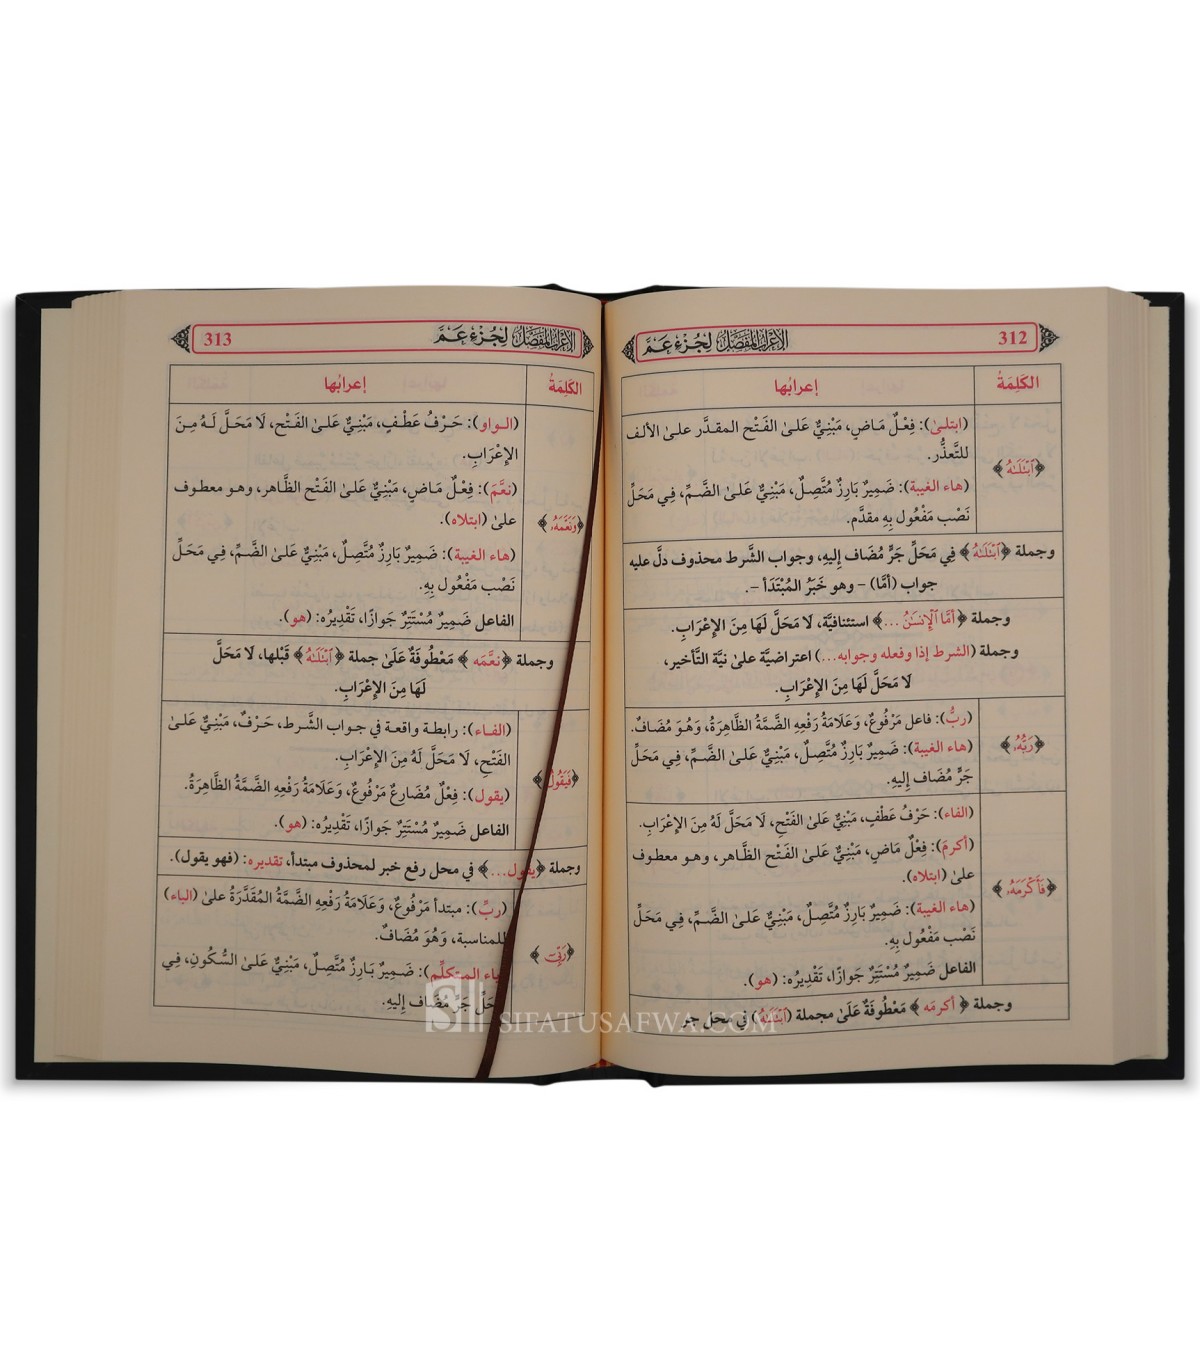 312
الإعراب المفصل لجزء عم
الكَلِمَةُ
إعرابُها
﴿ٱبۡتَلَىٰهُ﴾
(ابتلىٰ): فِعْلٌ مَاضٍ، مَبْنِيٌّ عَلىٰ الفَتْح المقدَّر علىٰ الألف
للتَّعذُّر.
(هاء الغيبة): ضَمِيرٌ بَارِزٌ مُتَّصِلٌ، مَبْنِيٌّ عَلىٰ الضَّمِّ، فِي مَحَلِّ
نَصْب مَفْعُول بِهِ مقدَّم.
وجملة ﴿ٱبۡتَلَىٰهُ﴾ فِي مَحَلِّ جَرٍّ مُضَاف إليهِ، وجواب الشَّرط محذوف دلَّ عليه
جواب (أمَّا) – وهو خَبَرُ المُبْتَدَأ –.
وجملة ﴿أَمَّا ٱلۡإِنسَٰنُ ...﴾ استئنافيَّة، لَا مَحَلَّ لَهَا مِنَ الإِعْرَابِ.
وجملة (الشرط إذا وفعله وجوابه...) اعتراضيَّة علىٰ نيَّة التَّأخير،
لَا مَحَلَّ لَهَا مِنَ الإِعْرَابِ.
﴿رَبُّهُۥ﴾
(ربُّ): فاعل مَرْفُوعٌ، وَعَلَامَةُ رَفْعِهِ الضَّمَّةُ الظَّاهِرَةُ، وَهُوَ مُضَافٌ.
(هاء الغيبة): ضَمِيرٌ بَارِزٌ مُتَّصِلٌ، مَبْنِيٌّ عَلىٰ الضَّمِّ، فِي مَحَلِّ
جَرٍّ مُضَاف إليهِ.
﴿فَأَكۡرَمَهُۥ﴾
(الفاء): حَرْفُ عَطْفٍ، مَبْنِيٌّ عَلىٰ الفَتْحِ، لَا مَحَلَّ لَهُ مِنَ الإِعْرَابِ.
(أكرمَ): فِعْلٌ مَاضٍ، مَبْنِيٌّ عَلىٰ الفَتْحِ الظَّاهر، وهـو معطوف
علىٰ (ابتلاه).
(هاء الغيبة): ضَمِيرٌ بَارِزٌ مُتَّصِلٌ، مَبْنِيٌّ عَلىٰ الضَّمِّ، فِي مَحَلِّ
نَصْب مَفْعُول بِهِ.
الفاعل ضَمِيرٌ مُسْتَتِرٌ جَوازًا، تَقْدِيرُه: (هو).
وجملة ﴿أكرمَه﴾ مَعْطُوفَةٌ عَلَىٰ مجملة (ٱبۡتَلَىٰهُ) في محل جر
الإعراب المفصل لجزء عم
313
الكَلِمَةُ
إعرابُها
﴿وَنَعَّمَهُۥ﴾
(الـواو): حَـرْفُ عَطْـفٍ، مَبْنِيٌّ عَلىٰ الفَتْح، لَا مَحَـلَّ لَـهُ مِـنَ
الإِعْرَابِ.
(نعَّمَ): فِعْلٌ مَاضٍ، مَبْنِيٌّ عَلىٰ الفَتْح الظَّاهر، وهـو معطوف
علىٰ (ابتلاه).
(هاء الغيبة): ضَمِيرٌ بَارِزٌ مُتَّصِلٌ، مَبْنِيٌّ عَلىٰ الضَّمِّ، فِي مَحَلِّ
نَصْب مَفْعُول بِهِ.
الفاعل ضَمِيرٌ مُسْتَتِرٌ جَوازًا، تَقْدِيرُه: (هو).
وجملة ﴿نعَّمَه﴾ مَعْطُوفَةٌ عَلَىٰ جملة ﴿ٱبۡتَلَىٰهُ﴾ قَبْلها، لَا مَحَلَّ
لَهَا مِنَ الإِعْرَابِ.
﴿فَيَقُولُ﴾
(الفـاء): رابطـة واقعـة في جـواب الشَّـرط، حَرْفٌ، مَبْنِيٌّ عَلىٰ
الفَتْحِ، لَا مَحَلَّ لَهُ مِنَ الإِعْرَابِ.
(يقول): فِعْلٌ مُضَارِعٌ مَرْفُوعٌ، وَعَلَامَةُ رَفْعِهِ الضَّمَّةُ الظَّاهِرَةُ.
الفاعل ضَمِيرٌ مُسْتَتِرٌ جَوازًا، تَقْدِيرُه: (هو).
وجملة ﴿يقول...﴾ في محل رفع خبر لمحذوف مبتدأ، تقديره: (فهو يقول).
﴿رَبِّيٓ﴾
(ربِّ): مبتدأ مَرْفُوعٌ، وَعَلَامَةُ رَفْعِهِ الضَّمَّةُ المُقَدَّرَةُ علىٰ (الباء)
للمناسبة، وَهُوَ مُضَافٌ.
(ياء المتكلِّم): ضَمِيرٌ بَارِزٌ مُتَّصِلٌ، مَبْنِيٌّ عَلىٰ السُّكُونِ، فِي
مَحَلِّ جَرٍّ مُضَاف إليهِ.
SIFATUSAFWA.COM